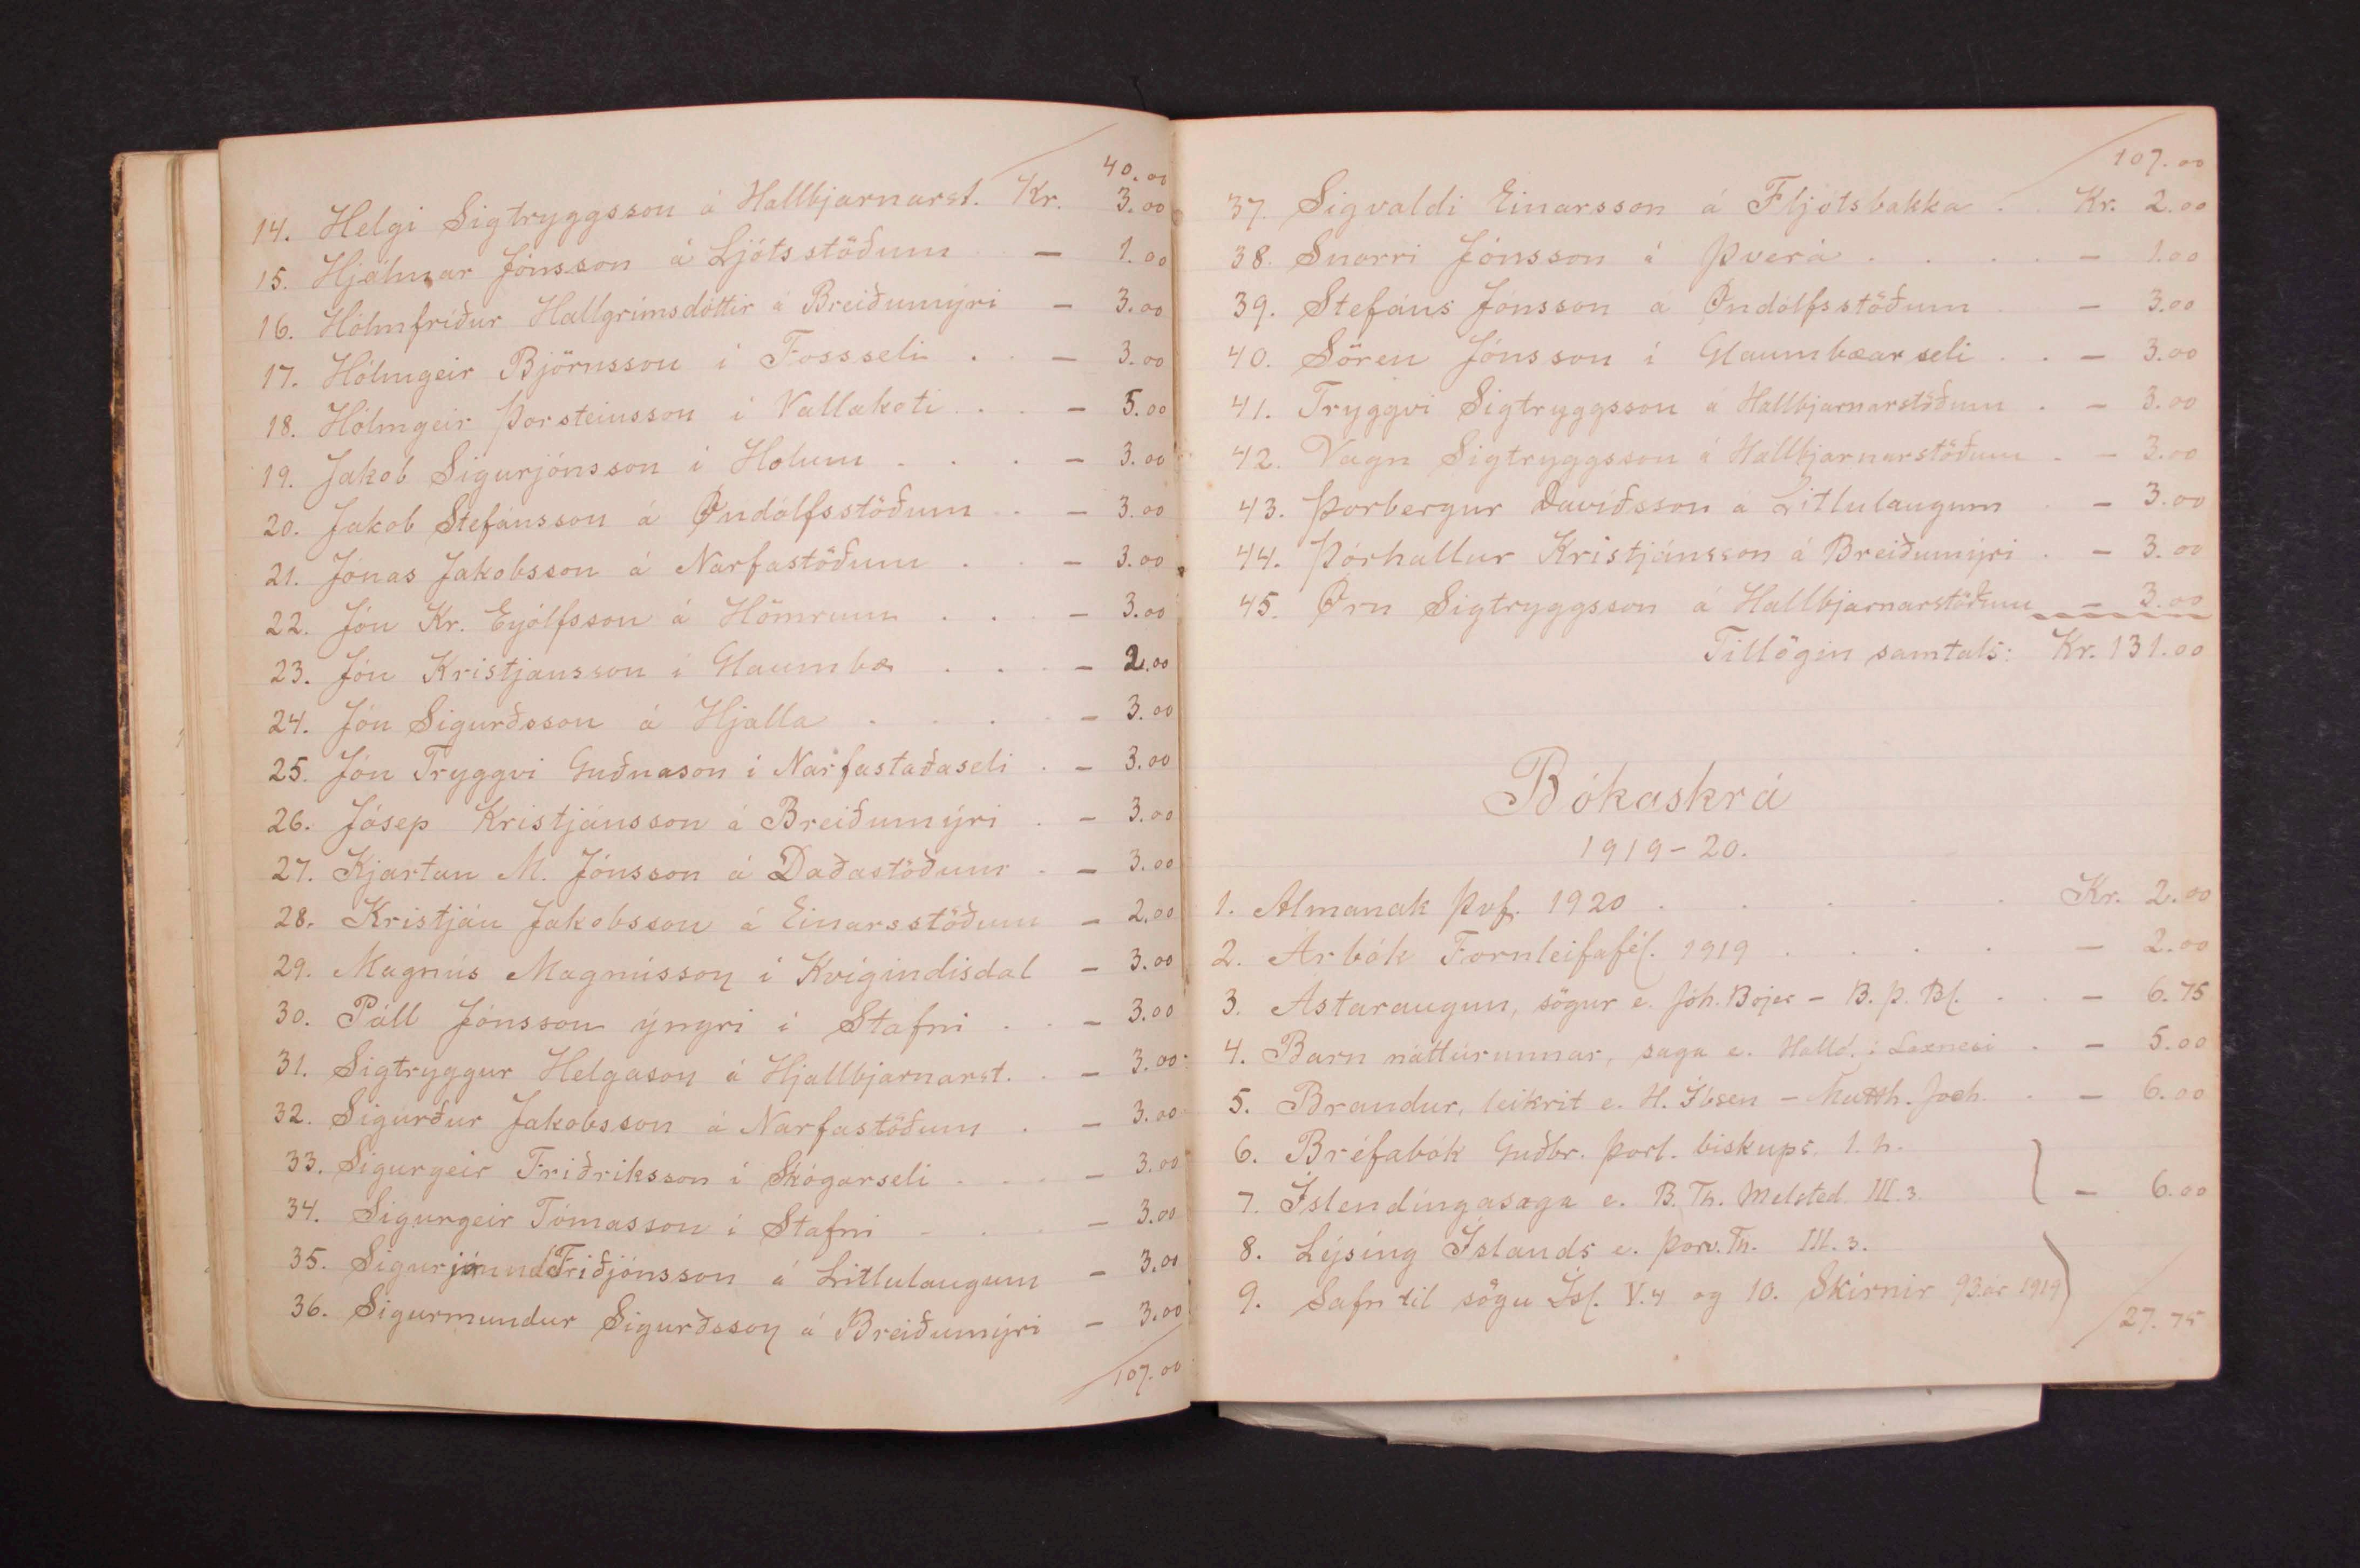 40.00
14. Helgi Sigtryggsson á Hallbjarnarst. Kr. 3.00
15. Hjálmar Jónsson á Ljótsstöðum . - 1.00
16. Hólmfríður Hallgrímsdóttir á Breiðumýri - 3.00
17. Hólmgeir Björnsson í Fossseli . . - 3.00
18. Hólmgeir Þorsteinsson í Vallakoti . . - 5.00
19. Jakob Sigurjónsson í Hólum . . . - 3.00
20. Jakob Stefánsson á Öndólfsstöðum . - 3.00
21. Jónas Jakobsson á Narfastöðum . . - 3.00
22. Jón Kr. Eyjólfsson á Hömrum . . . - 3.00
23. Jón Kristjánsson í Glaumbæ . . . - 2.00
24. Jón Sigurðsson á Hjalla . . . . - 3.00
25. Jón Tryggvi Guðnason í Narfastaðaseli . - 3.00
26. Jósep Kristjánsson á Breiðumýri . - 3.00
27. Kjartan M. Jónsson á Daðastöðum . - 3.00
28. Kristján Jakobsson á Einarsstöðum - 2.00
29. Magnús Magnússon í Kvígindisdal - 3.00
30. Páll Jónsson yngri í Stafni . . - 3.00
31. Sigtryggur Helgason á Hjallbjarnarst. . - 3.00
32. Sigurður Jakobsson á Narfastöðum . - 3.00
33. Sigurgeir Friðriksson í Skógarseli . . . - 3.00
34. Sigurgeir Tómasson í Stafni . . . - 3.00
35. Sigurjón Friðjónsson á Litlulaugum - 3.00
36. Sigurmundur Sigurðsson á Breiðumýri - 3.00
107.00
107.00
37. Sigvaldi Einarsson á Fljótsbakka . . Kr. 2.00
38. Snorri Jónsson á Þverá . . . . - 1.00
39. Stefáns Jónsson á Öndólfsstöðum . - 3.00
40. Sören Jónsson í Glaumbæarseli . . - 3.00
41. Tryggvi Sigtryggsson á Hallbjarnarstöðum . - 3.00
42. Vagn Sigtryggsson á Hallbjarnarstöðum . - 3.00
43. Þorbergur Davíðsson á Litlulaugum . - 3.00
44. Þórhallur Kristjánsson á Breiðumýri . - 3.00
45. Örn Sigtryggsson á Hallbjarnarstöðum - 3.00
Tillögin samtals: Kr. 131.00
Bókaskrá
1919-20.
1. Almanak Þvf. 1920 . . . . . Kr. 2.00
2. Árbók Fornleifafél. 1919 . . . . - 2.00
3. Ástaraugun, sögur e. Jóh. Bojer - B. Þ. Bl. . . - 6.75
4. Barn náttúrunnar, saga e. Halld. í Laxnesi . - 5.00
5. Brandur, leikrit e. H. Íbsen - Matth. Joch. . - 6.00
6. Bréfabók Guðbr. Þorl. biskups, 1. h.
7. Íslendingasaga e. B. Th. Melsted III. 3. } - 6.00
8. Lýsing Íslands e. Þorv. Th. III. 3.
9. Safn til sögu Ísl. V. 4 og 10. Skírnir 93. ár 1919
27.75